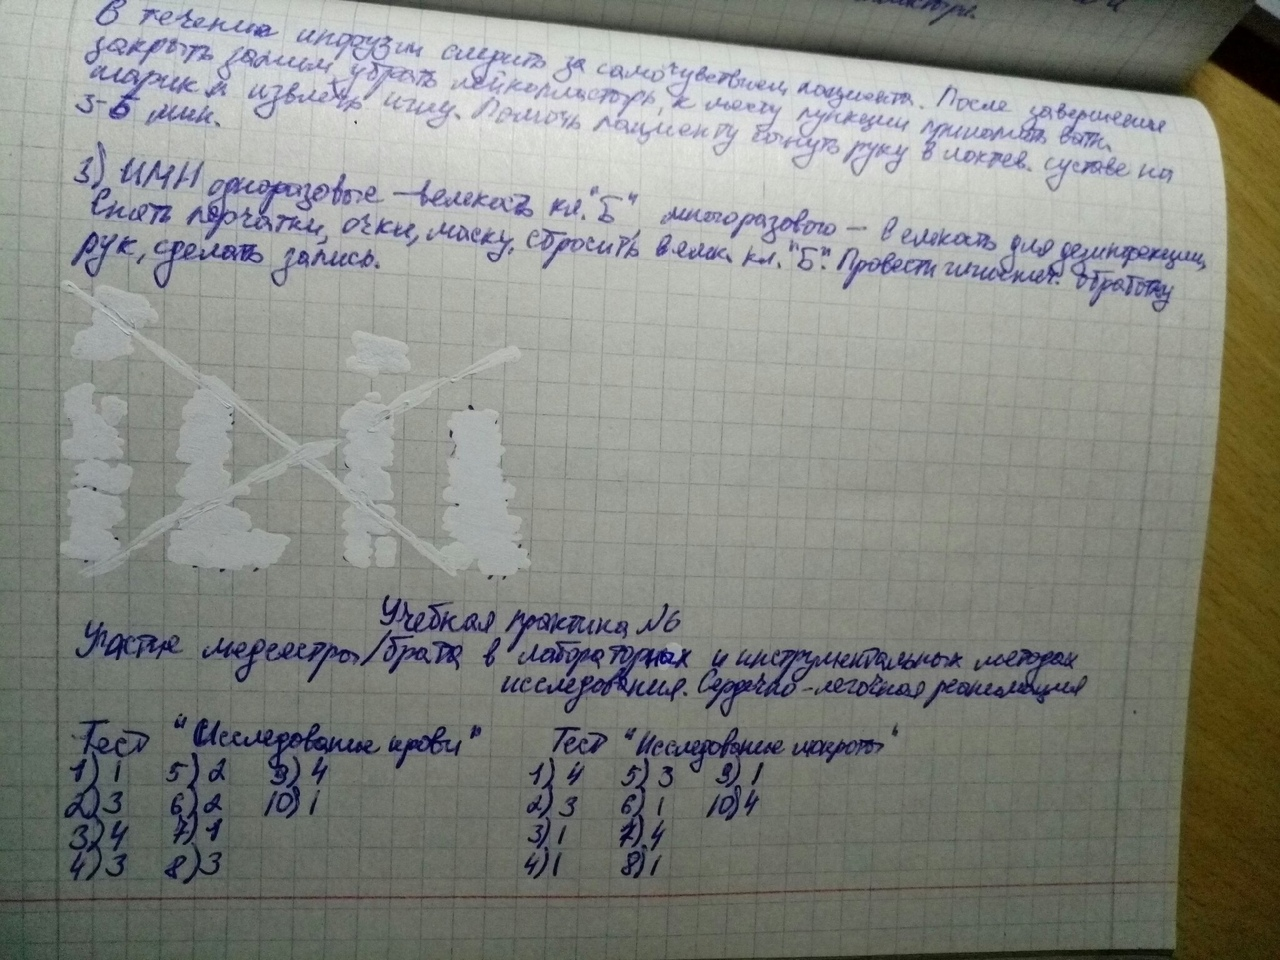 В течение инфузии следить за самочувствием пациента. После завершения
закрыть зажим, убрать лейкопластырь, к месту пункции приложить ватн.
шарик и извлечь иглу. Помочь пациенту согнуть руку в локтев. суставе на
3-5 мин.
3) ИМН одноразовые – в емкость кл. "Б", многоразового – в емкость для дезинфекции,
Снять перчатки, очки, маску, сбросить в емк. кл. "Б". Провести гигиенич. обработку
рук, сделать запись.
Учебная практика №6
Участие медсестры/брата в лабораторных и инструментальных методах
исследования. Сердечно-легочная реанимация
Тест "Исследование крови" Тест "Исследование мокроты"
1) 1 5) 2 9) 4 1) 4 5) 3 9) 1
2) 3 6) 2 10) 1 2) 3 6) 1 10) 4
3) 4 7) 1 3) 1 7) 4
4) 3 8) 3 4) 1 8) 1